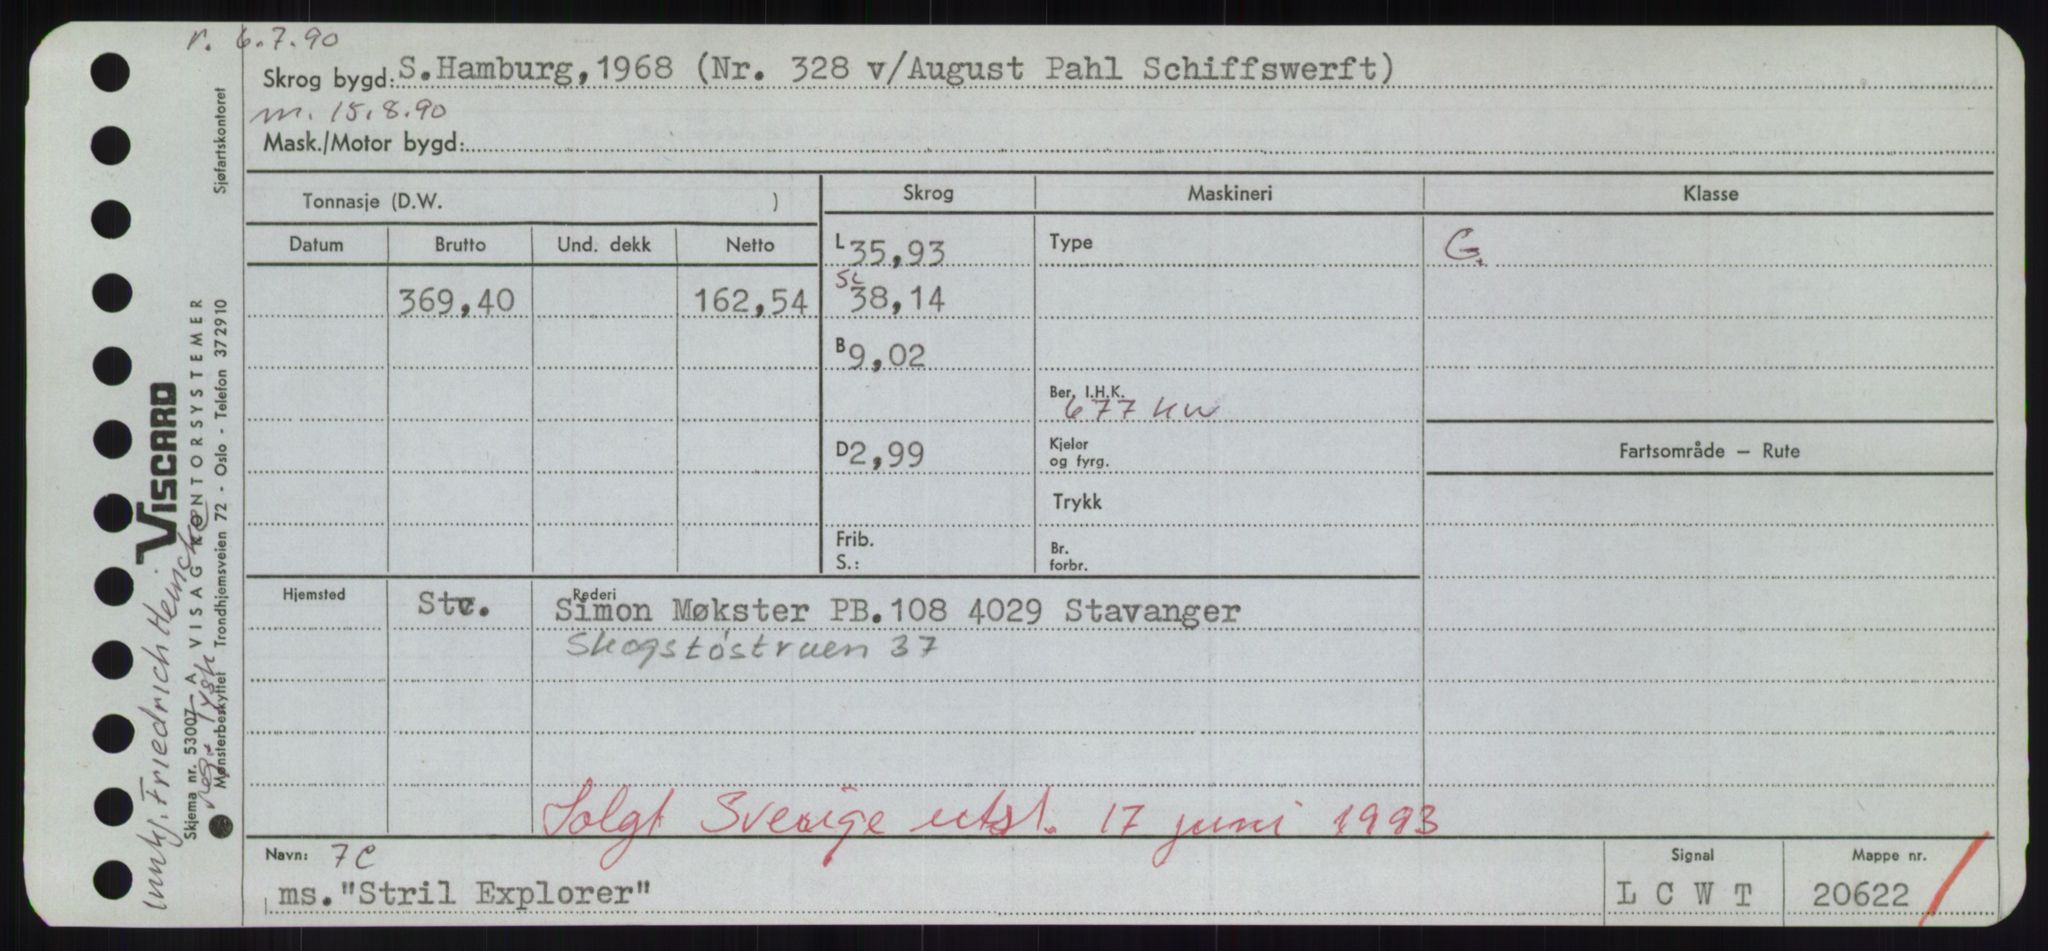 r. 6.7.90
Skrog bygd: S.Hamburg, 1968 (Nr. 328 v/August Pahl Schiffswerft)
m. 15.8.90
Mask./Motor bygd:
Tonnasje (D.W. )
Skrog Maskineri Klasse
Datum Brutto Und. dekk Netto
L 35,93 Type G.
369,40 162,54 SL 38,14
B 9,02
Ber. I.H.K. 677 KW
D 2,99 Kjeler og fyrg. Fartsområde — Rute
Trykk
Frib. S.: Br. forbr.
Hjemsted Stv. Rederi Simon Møkster PB.108 4029 Stavanger
Skogstøstraen 37
Solgt Sverige utsl. 17 juni 1993
Navn: 7C
ms. "Stril Explorer"
Signal L C W T
Mappe nr. 20622
Sjøfartskontoret
VISCARD
A VISAG KONTORSYSTEMER
Skjema nr. 53007
Mønsterbeskyttet Trondhjemsveien 72 - Oslo - Telefon 372910
Friedrich
reg. tysk